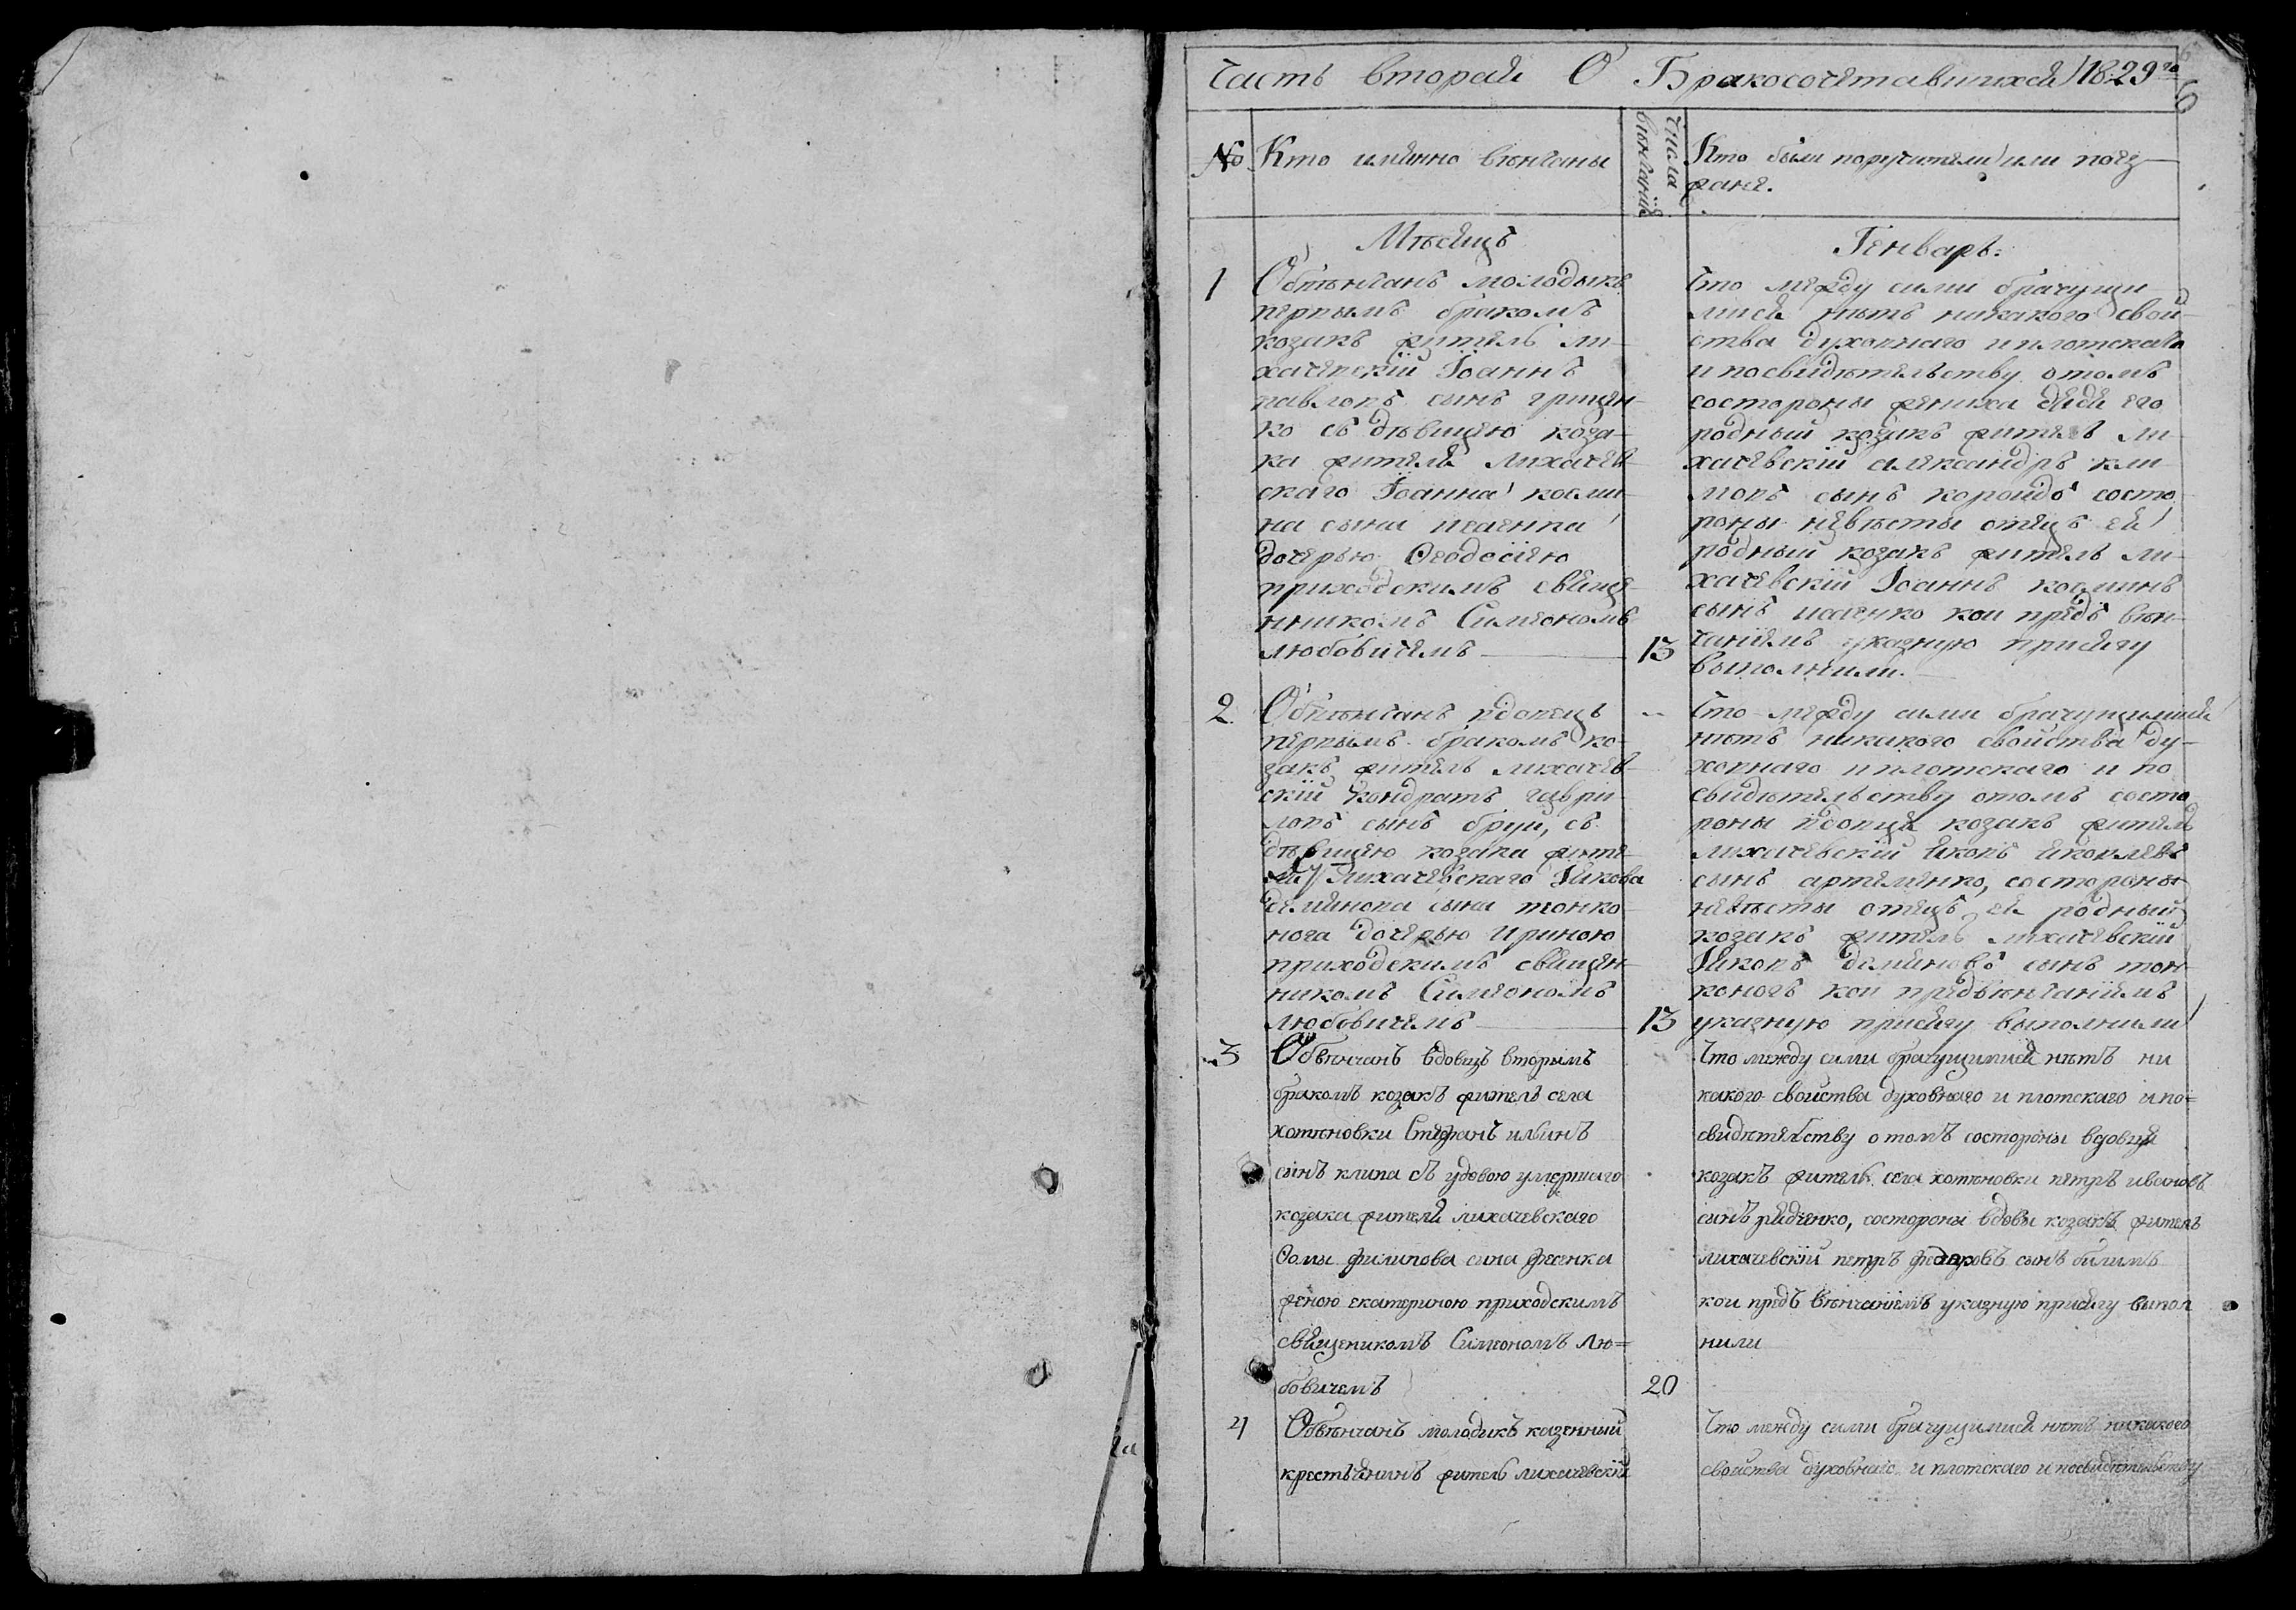 Часть вторая О Бракосочетавшихся 1829го
6
№ Кто имянно венчаны
Числа венчанія
Кто были поручители или поез-
жане.
Мѣсяцъ
Генварь:
1
Обвѣнчанъ молодыкъ
первымъ бракомъ
козакъ житель ли-
хачевскій Іоаннъ
павловъ сынъ грицен-
ко съ дѣвицею коза-
ка жителя лихачев-
скаго Іоанна косми-
на сына исаенка
дочерью Ѳеодосіею
приходскимъ свяще-
нникомъ Симеономъ
любовичемъ
13
Что между сими брачущи-
мися нѣтъ никакого свой-
ства духовнаго и плотскаго
и по свидѣтельству о томъ
состороны жениха дядя его
родный козакъ житель ли-
хачевскій александръ кли-
мовъ сынъ состо-
роны невѣсты отецъ ея
родный козакъ житель ли-
хачевскій Іоаннъ косминъ
сынъ исаенко кои предъ вѣн-
чаніемъ указную присягу
выполнили.
2.
Обвѣнчанъ вдовецъ
первымъ бракомъ ко-
закъ житель лихачев-
скій кондратъ гаври-
ловъ сынъ бруй, съ
дѣвицею козака жите-
ля лихачевскаго Якова
деминова сына тонко-
нога дочерью Ириною
приходскимъ священ-
никомъ Симеономъ
любовичемъ
13
Что между сими брачущимися
нѣтъ никакого свойства ду-
ховнаго и плотскаго и по
свидѣтельству о томъ состо-
роны вдовца козакъ житель
лихачевскій Яковъ яковлевъ
сынъ артеменко, состороны
невѣсты отецъ ея родный
козакъ житель лихачевскій
Яковъ деминовъ сынъ тон-
коногъ кои предвѣнчаніемъ
указную присягу выполнили
3
Обвѣнчанъ вдовецъ вторымъ
бракомъ козакъ житель села
хотѣновки Стефанъ ильинъ
сынъ клипа съ удовою умершаго
козака жителя лихачевскаго
Ѳомы филипова сина фесенка
женою екатериною приходскимъ
священикомъ Симеономъ Лю=
бовичемъ
20
Что между сими брачущимися нѣтъ ни
какого свойства духовнаго и плотскаго и по=
свидѣтельству о томъ состороны вдовца
козакъ житель села хотѣновки петръ ивановъ
синъ редченко, состороны вдовы козакъ житель
лихачевскій петръ федоровъ сынъ билимъ
кои предъ вѣнчаніемъ указную присягу выпол
нили
4
Обвѣнчанъ молодикъ казенный
крестьянинъ житель лихачевскій
Что между сими брачущимися нѣтъ никакого
свойства духовнаго и плотскаго и посвидѣтельству